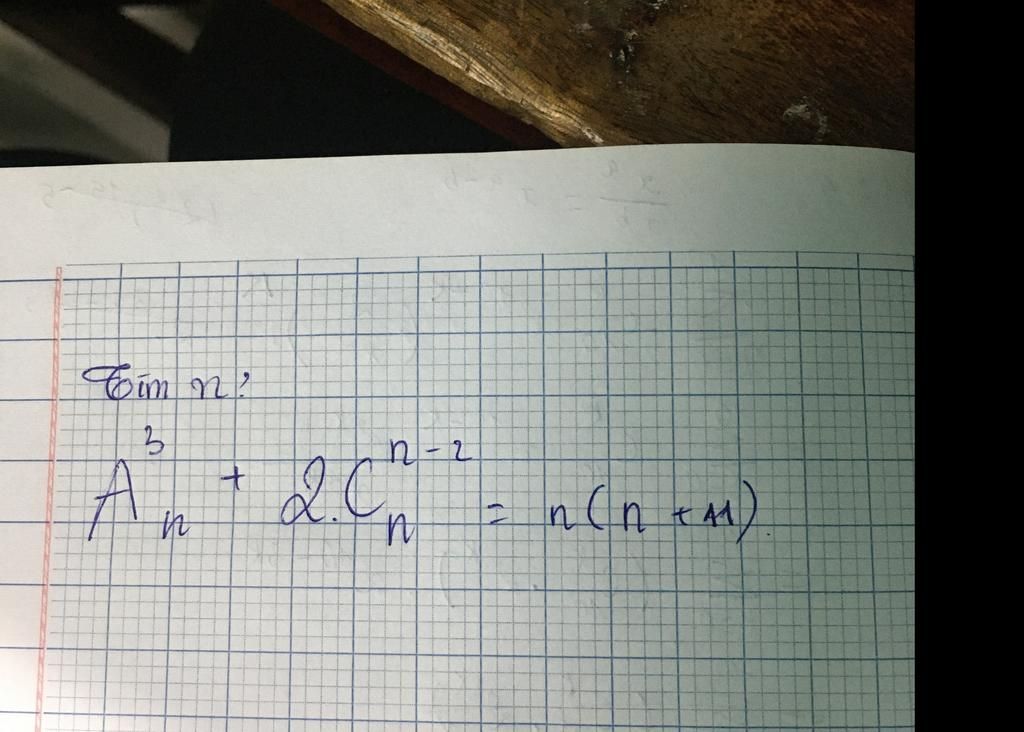 Tìm n:
A³ₙ + 2.Cₙⁿ⁻² = n(n + 11).